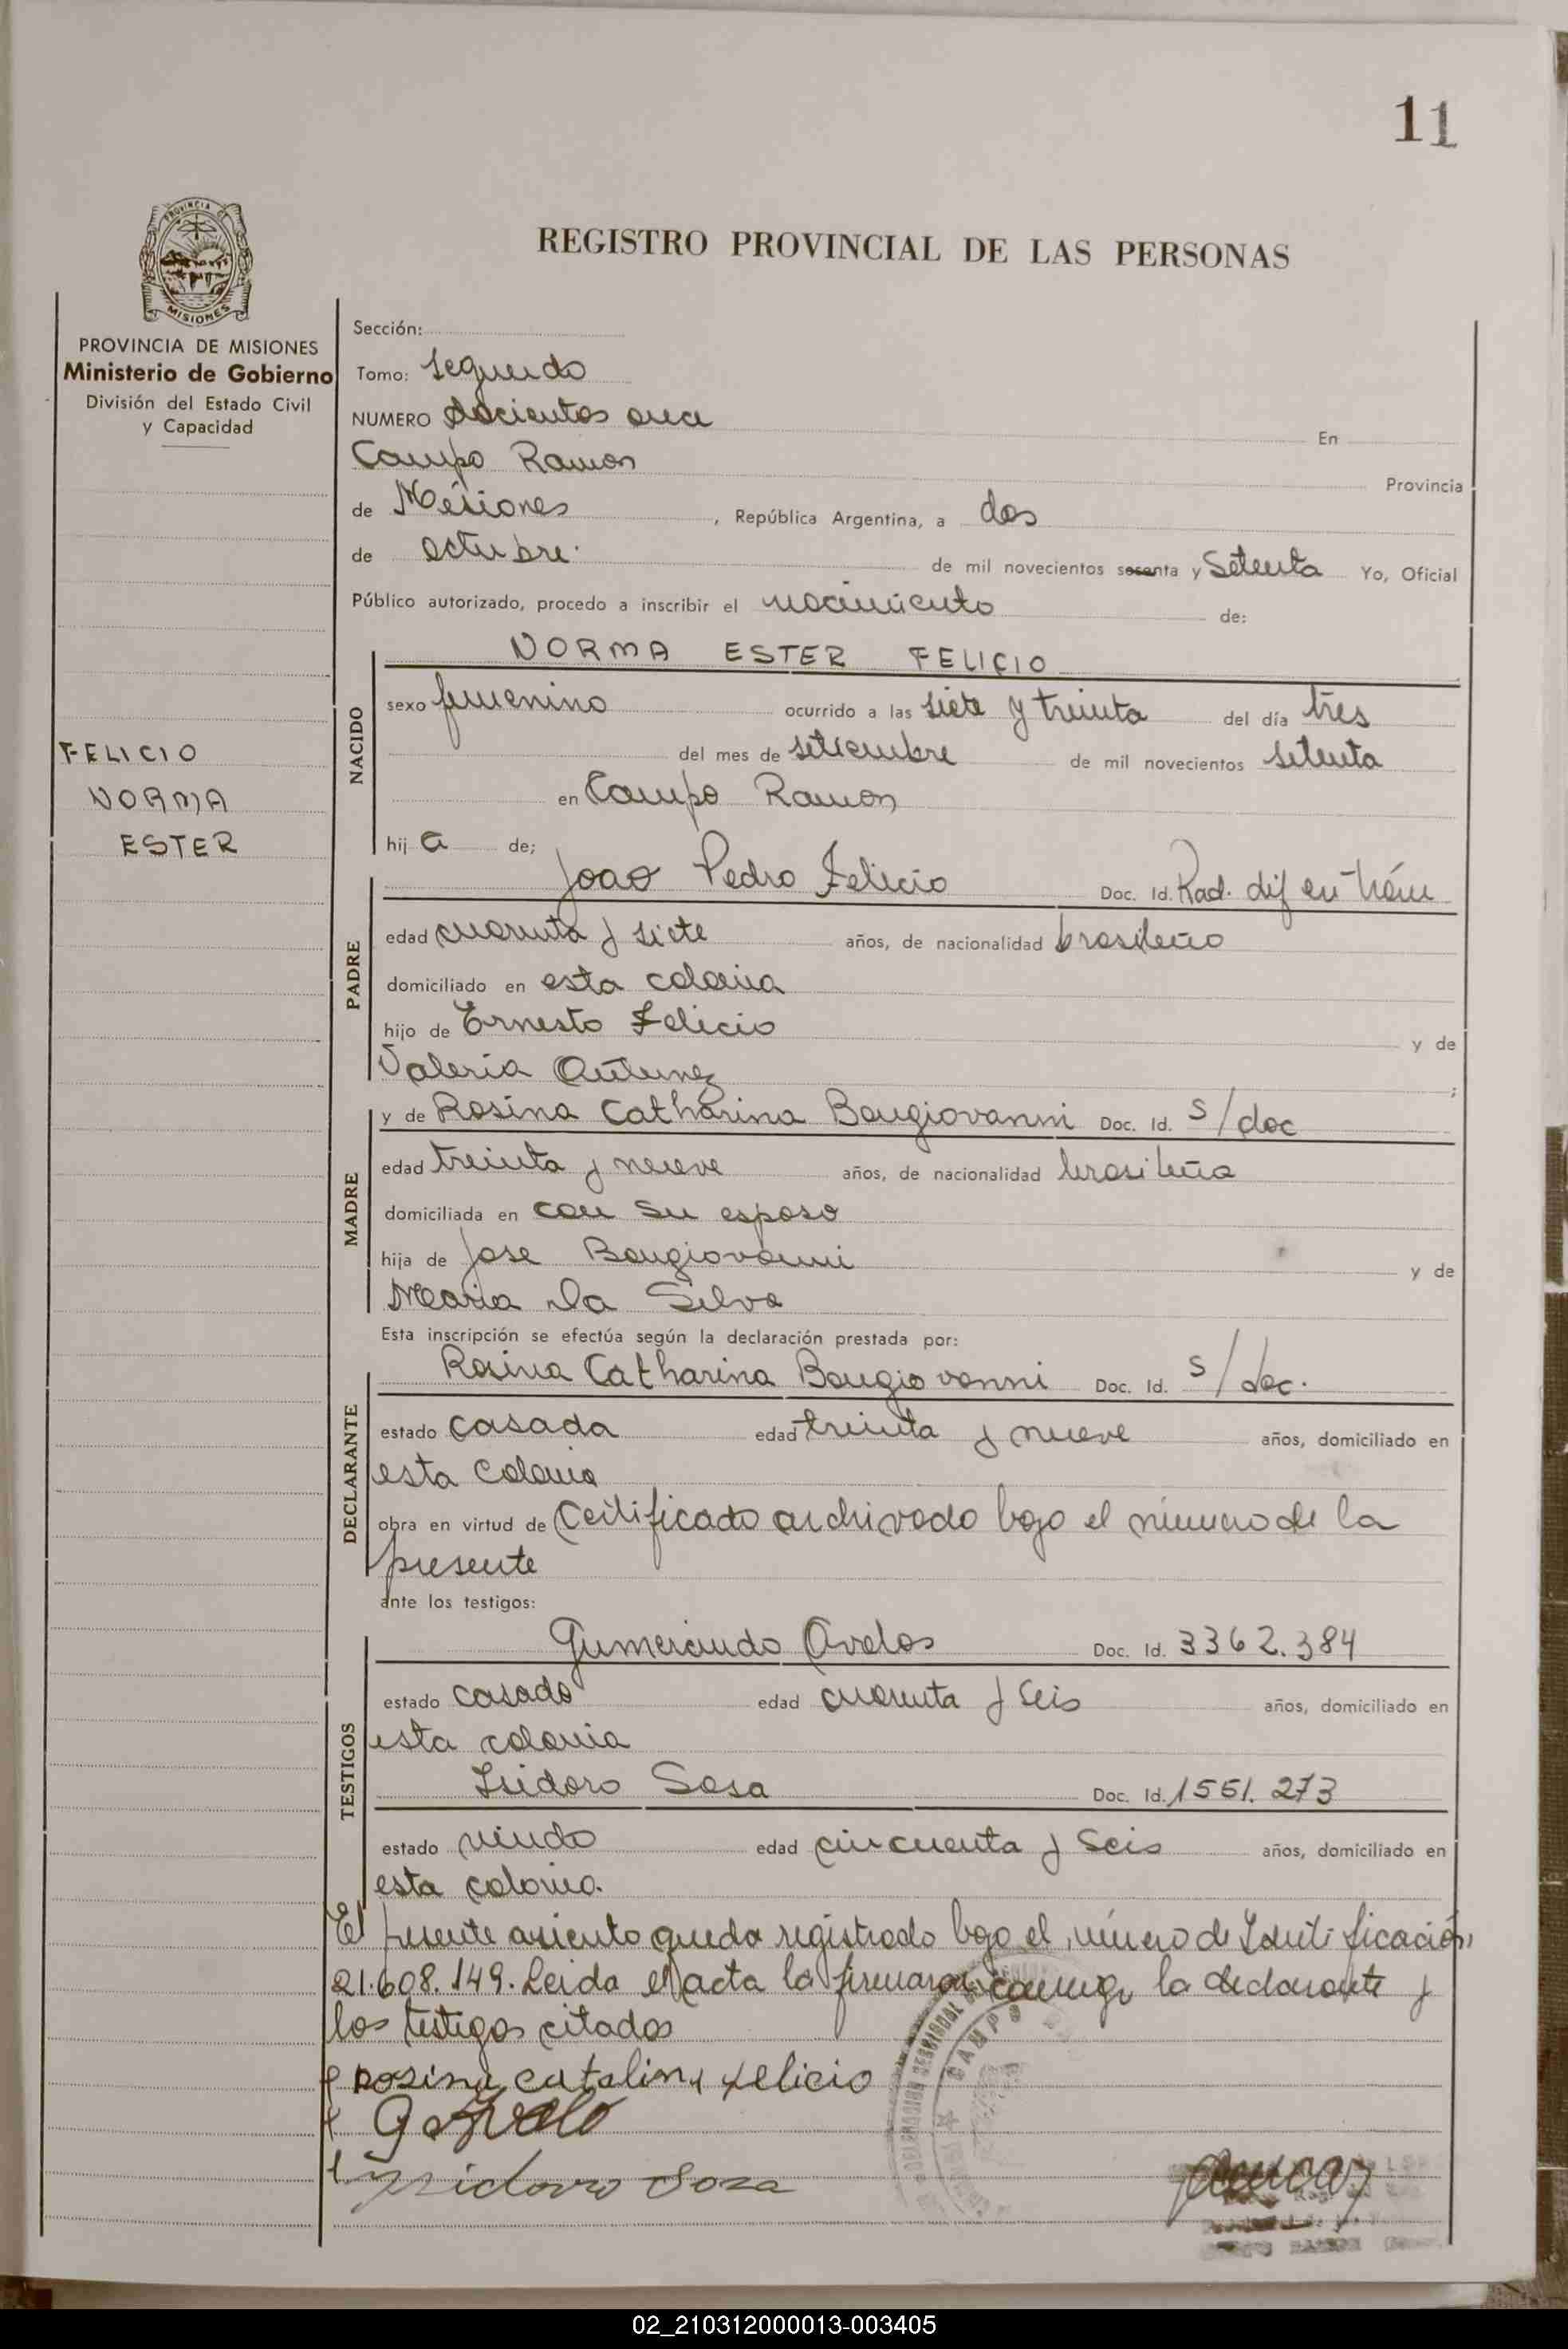 11
REGISTRO PROVINCIAL DE LAS PERSONAS
PROVINCIA DE MISIONES
Ministerio de Gobierno
División del Estado Civil
y Capacidad
FELICIO
NORMA
ESTER
Sección:
Tomo: segundo
NUMERO docientos once En
Campo Ramon Provincia
de Misiones, República Argentina, a dos
de octubre. de mil novecientos sesenta y setenta Yo, Oficial
Público autorizado, procedo a inscribir el nacimiento de:
NORMA ESTER FELICIO
NACIDO
sexo femenino ocurrido a las siete y treinta del día tres
del mes de setiembre de mil novecientos setenta
en Campo Ramon
hij a de;
PADRE
Joao Pedro Felicio Doc. Id. Rad. dif en trám
edad cuarenta y siete años, de nacionalidad brasileño
domiciliado en esta colonia
hijo de Ernesto Felicio y de
Valeria Antunez ;
MADRE
y de Rosina Catharina Bongiovanni Doc. Id. s/doc
edad treinta y nueve años, de nacionalidad brasileña
domiciliada en con su esposo
hija de Jose Bongiovanni y de
Maria da Silva
Esta inscripción se efectúa según la declaración prestada por:
DECLARANTE
Rosina Catharina Bongiovanni Doc. Id. s/doc.
estado casada edad treinta y nueve años, domiciliado en
esta colonia
obra en virtud de Certificado archivado bajo el número de la
presente
ante los testigos:
TESTIGOS
Gumercindo Avelos Doc. Id. 3362.384
estado casado edad cuarenta y seis años, domiciliado en
esta colonia
Isidoro Sosa Doc. Id. 1551.273
estado viudo edad cincuenta y seis años, domiciliado en
esta colonia.
El presente asiento queda registrado bajo el número de Identificación
21.608.149. Leida el acta la firmaron conmigo la declarante y
los testigos citados
Rosina catalina felicio
Ysidoro Sosa
CAMPO
MISIONES
02_210312000013-003405